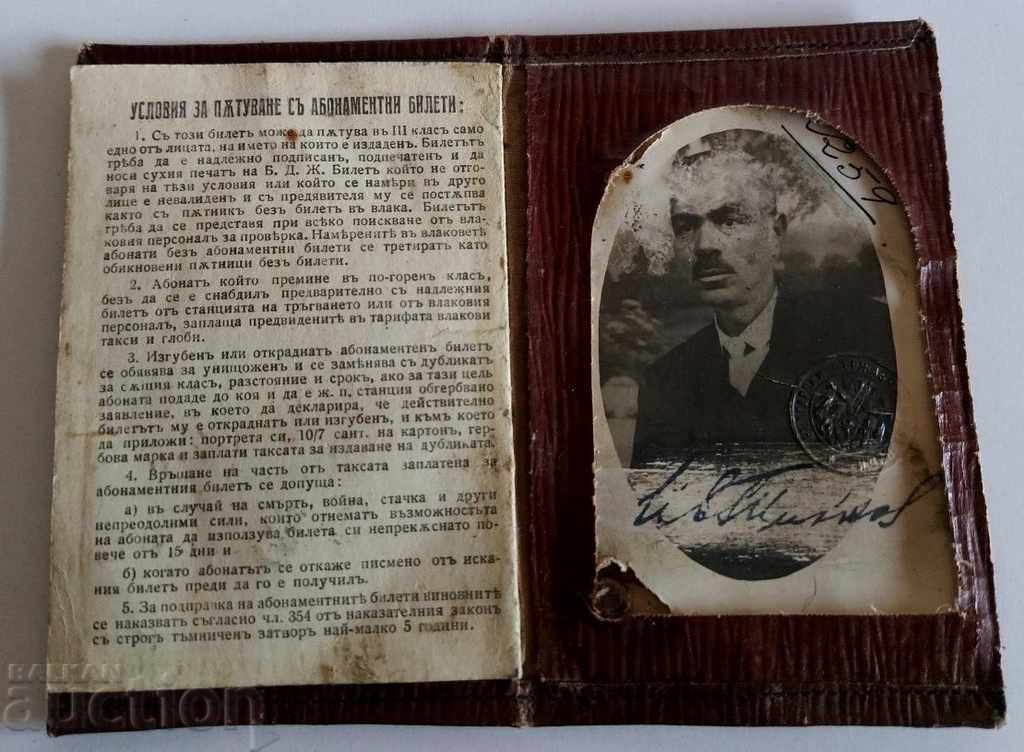 УСЛОВИЯ ЗА ПѪТУВАНЕ СЪ АБОНАМЕНТНИ БИЛЕТИ:
1. Съ този билетъ може да пѫтува въ III класъ само
едно отъ лицата, на името на които е издаденъ. Билетътъ
трѣба да е надлежно подписанъ, подпечатенъ и да
носи сухия печатъ на Б. Д. Ж. Билетъ който не отго-
варя на тѣзи условия или който се намѣри въ друго
лице е невалиденъ и съ предявителя му се постѫпва
както съ пѫтникъ безъ билетъ въ влака. Билетътъ
трѣба да се представя при всѣко поискване отъ вла-
ковия персоналъ за провѣрка. Намѣренитѣ въ влаковетѣ
абонати безъ абонаментни билети се третиратъ като
обикновени пѫтници безъ билети.
2. Абонатъ който премине въ по-горенъ класъ,
безъ да се е снабдилъ предварително съ надлежния
билетъ отъ станцията на тръгването или отъ влаковия
персоналъ, заплаща предвиденитѣ въ тарифата влакови
такси и глоби.
3. Изгубенъ или откраднатъ абонаментенъ билетъ
се обявява за унищоженъ и се замѣнява съ дубликатъ
за сѫщия класъ, разстояние и срокъ, ако за тази цель
абоната подаде до коя и да е ж. п. станция обгербвано
заявление, въ което да декларира, че действително
билетътъ му е откраднатъ или изгубенъ, и къмъ което
да приложи: портрета си, 10/7 сант. на картонъ, гер-
бова марка и заплати таксата за издаване на дубликата.
4. Връщане на часть отъ таксата заплатена за
абонаментния билетъ се допуща:
а) въ случай на смърть, война, стачка и други
непреодолими сили, които отнематъ възможностьта
на абоната да използува билета си непрекѫснато по-
вече отъ 15 дни и
б) когато абонатътъ се откаже писмено отъ иска-
ния билетъ преди да го е получилъ.
5. За подправка на абонаментнитѣ билети виновнитѣ
се наказватъ съгласно чл. 354 отъ наказателния законъ
съ строгъ тъмниченъ затворъ най-малко 5 години.
BALKAN
auction